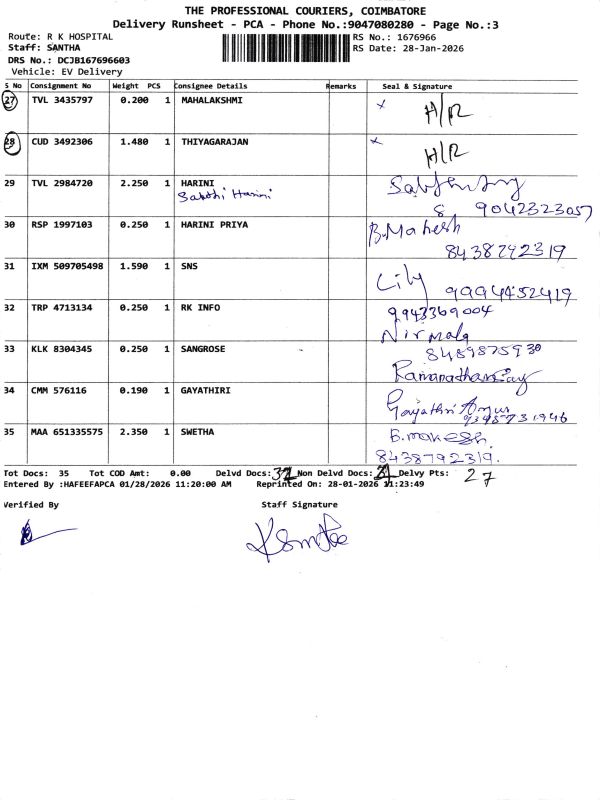 THE PROFESSIONAL COURIERS, COIMBATORE
Delivery Runsheet - PCA - Phone No.:9047080280 - Page No.:3
Route: R K HOSPITAL
Staff: SANTHA
DRS No.: DCJB167696603
Vehicle: EV Delivery
RS No.: 1676966
RS Date: 28-Jan-2026
S No Consignment No Weight PCS Consignee Details Remarks Seal & Signature
27 TVL 3435797 0.200 1 MAHALAKSHMI x H/R
28 CUD 3492306 1.480 1 THIYAGARAJAN x H/R
29 TVL 2984720 2.250 1 HARINI
Sakthi Harini
8 9042323057
30 RSP 1997103 0.250 1 HARINI PRIYA B.Mahesh
8438792319
31 IXM 509705498 1.590 1 SNS Lily 9994452419
32 TRP 4713134 0.250 1 RK INFO 9943369004
Nirmala
33 KLK 8304345 0.250 1 SANGROSE 8489875930
34 CMM 576116 0.190 1 GAYATHIRI Gayathri
35 MAA 651335575 2.350 1 SWETHA B.mahesh.
8438792319.
Tot Docs: 35 Tot COD Amt: 0.00 Delvd Docs: Non Delvd Docs: Delvy Pts: 27
Entered By :HAFEEFAPCA 01/28/2026 11:20:00 AM Reprinted On: 28-01-2026 11:23:49
Verified By Staff Signature